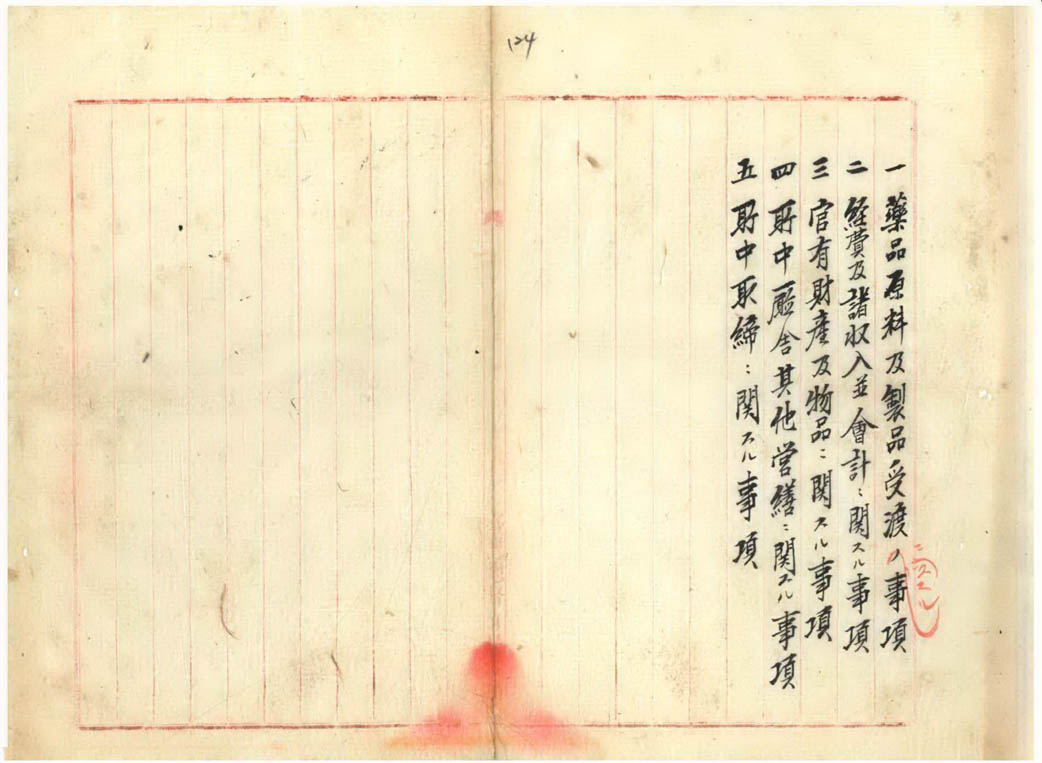 124
一 藥品原料及製品受渡ノ事項
ニ関スル
二 経費及諸収入並會計ニ関スル事項
三 官有財産及物品ニ関スル事項
四 所中廳舎其他営繕ニ関スル事項
五 所中取締ニ関スル事項